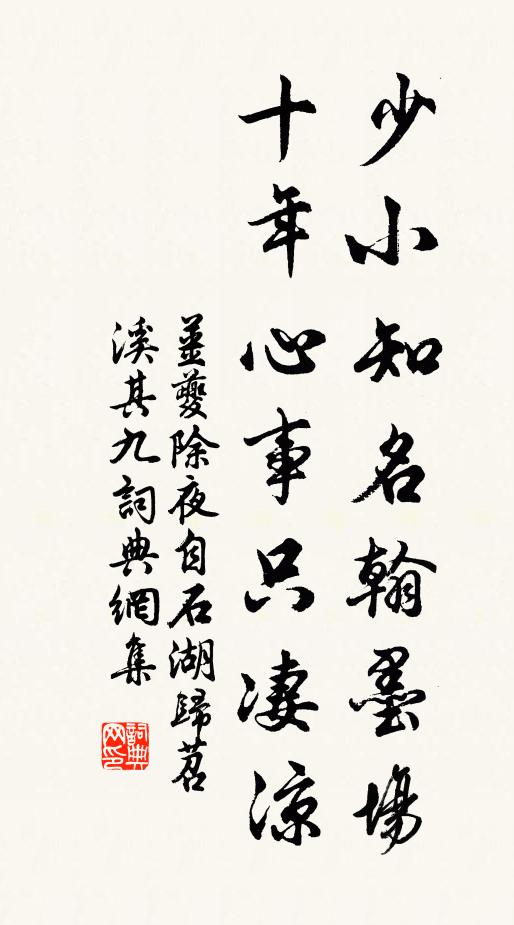 少小知名翰墨場
十年心事只凄涼
姜夔除夜自石湖歸苕
溪其九詞典網集
詞典
网印